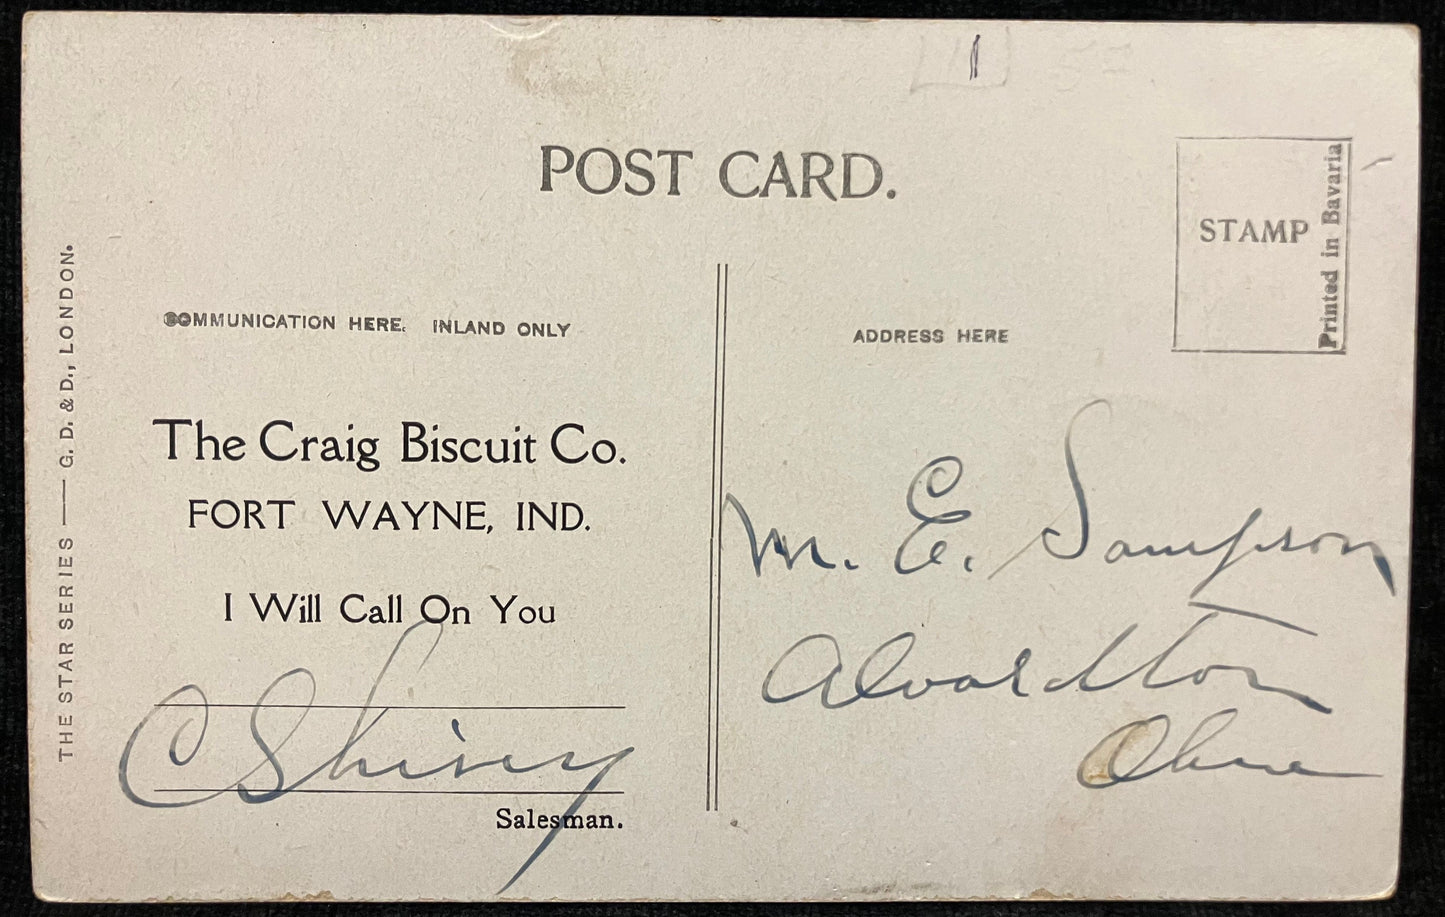 POST CARD.
STAMP
Printed in Bavaria
THE STAR SERIES — G. D. & D., LONDON.
COMMUNICATION HERE. INLAND ONLY
ADDRESS HERE
The Craig Biscuit Co.
FORT WAYNE, IND.
I Will Call On You
C Shivey
Salesman.
M. E. Sampson
Alvordton
Ohio